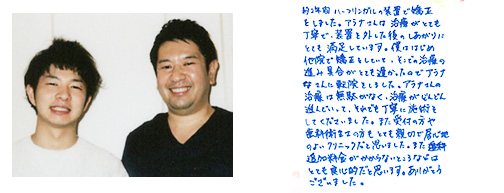 約2年間ハーフリンガルの装置で矯正
をしました。アラナさんは治療がとても
丁寧で、装置を外した後のしあがりに
とても満足しています。僕ははじめ
他院で矯正をしていて、そこでの治療の
進み具合がとても遅かったのでアラナ
さんに転院をしました。アラナさんの
治療は無駄がなく、治療がどんどん
進んでいて、それでも丁寧に施術を
してくださいました。また受付の方や
歯科衛生士の方もとても親切で居心地
のよいクリニックだと思いました。また
追加料金がかからないところなどは
とても良心的だと思います。ありがとう
ございました。